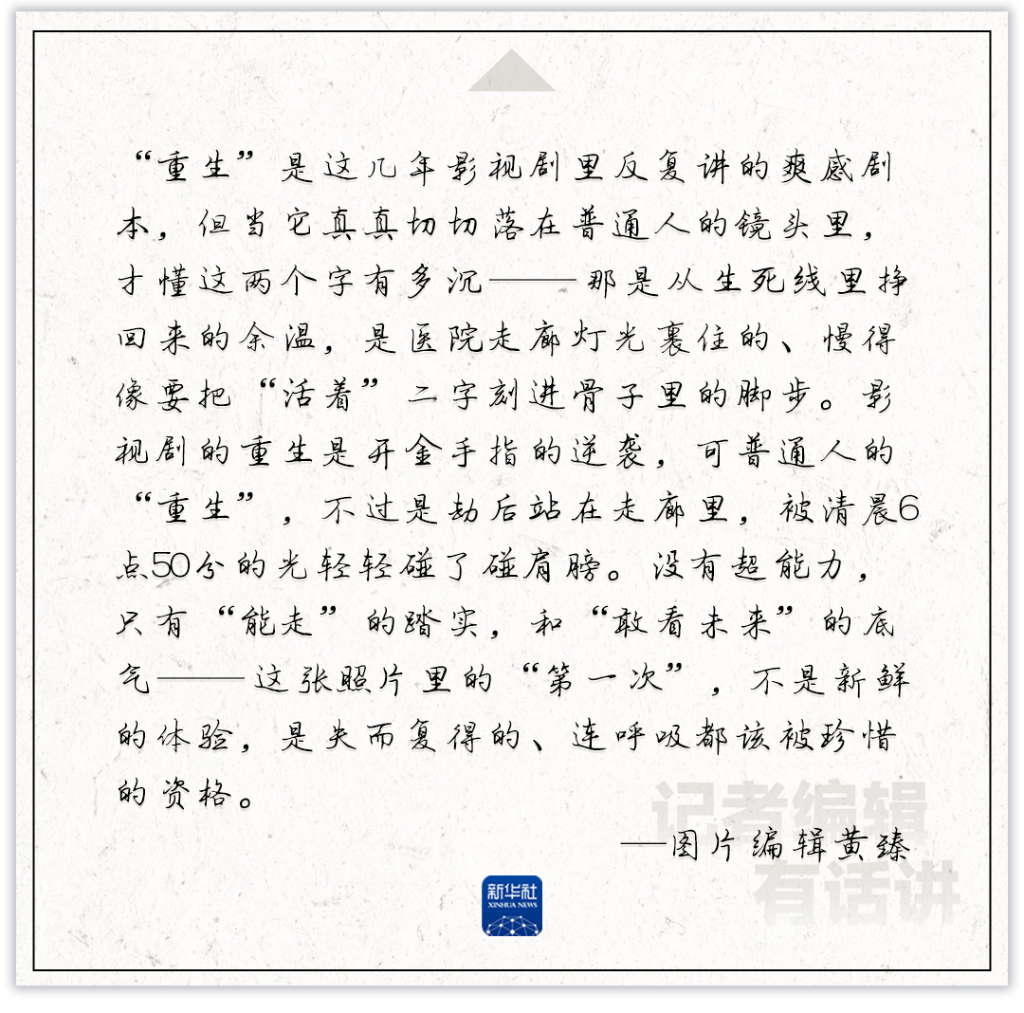 “重生”是这几年影视剧里反复讲的爽感剧
本，但当它真真切切落在普通人的镜头里，
才懂这两个字有多沉——那是从生死线里挣
回来的余温，是医院走廊灯光裹住的、慢得
像要把“活着”二字刻进骨子里的脚步。影
视剧的重生是开金手指的逆袭，可普通人的
“重生”，不过是劫后站在走廊里，被清晨6
点50分的光轻轻碰了碰肩膀。没有超能力，
只有“能走”的踏实，和“敢看未来”的底
气——这张照片里的“第一次”，不是新鲜
的体验，是失而复得的、连呼吸都该被珍惜
的资格。
记者编辑
—图片编辑黄臻
有话讲
新华社
XINHUA NEWS